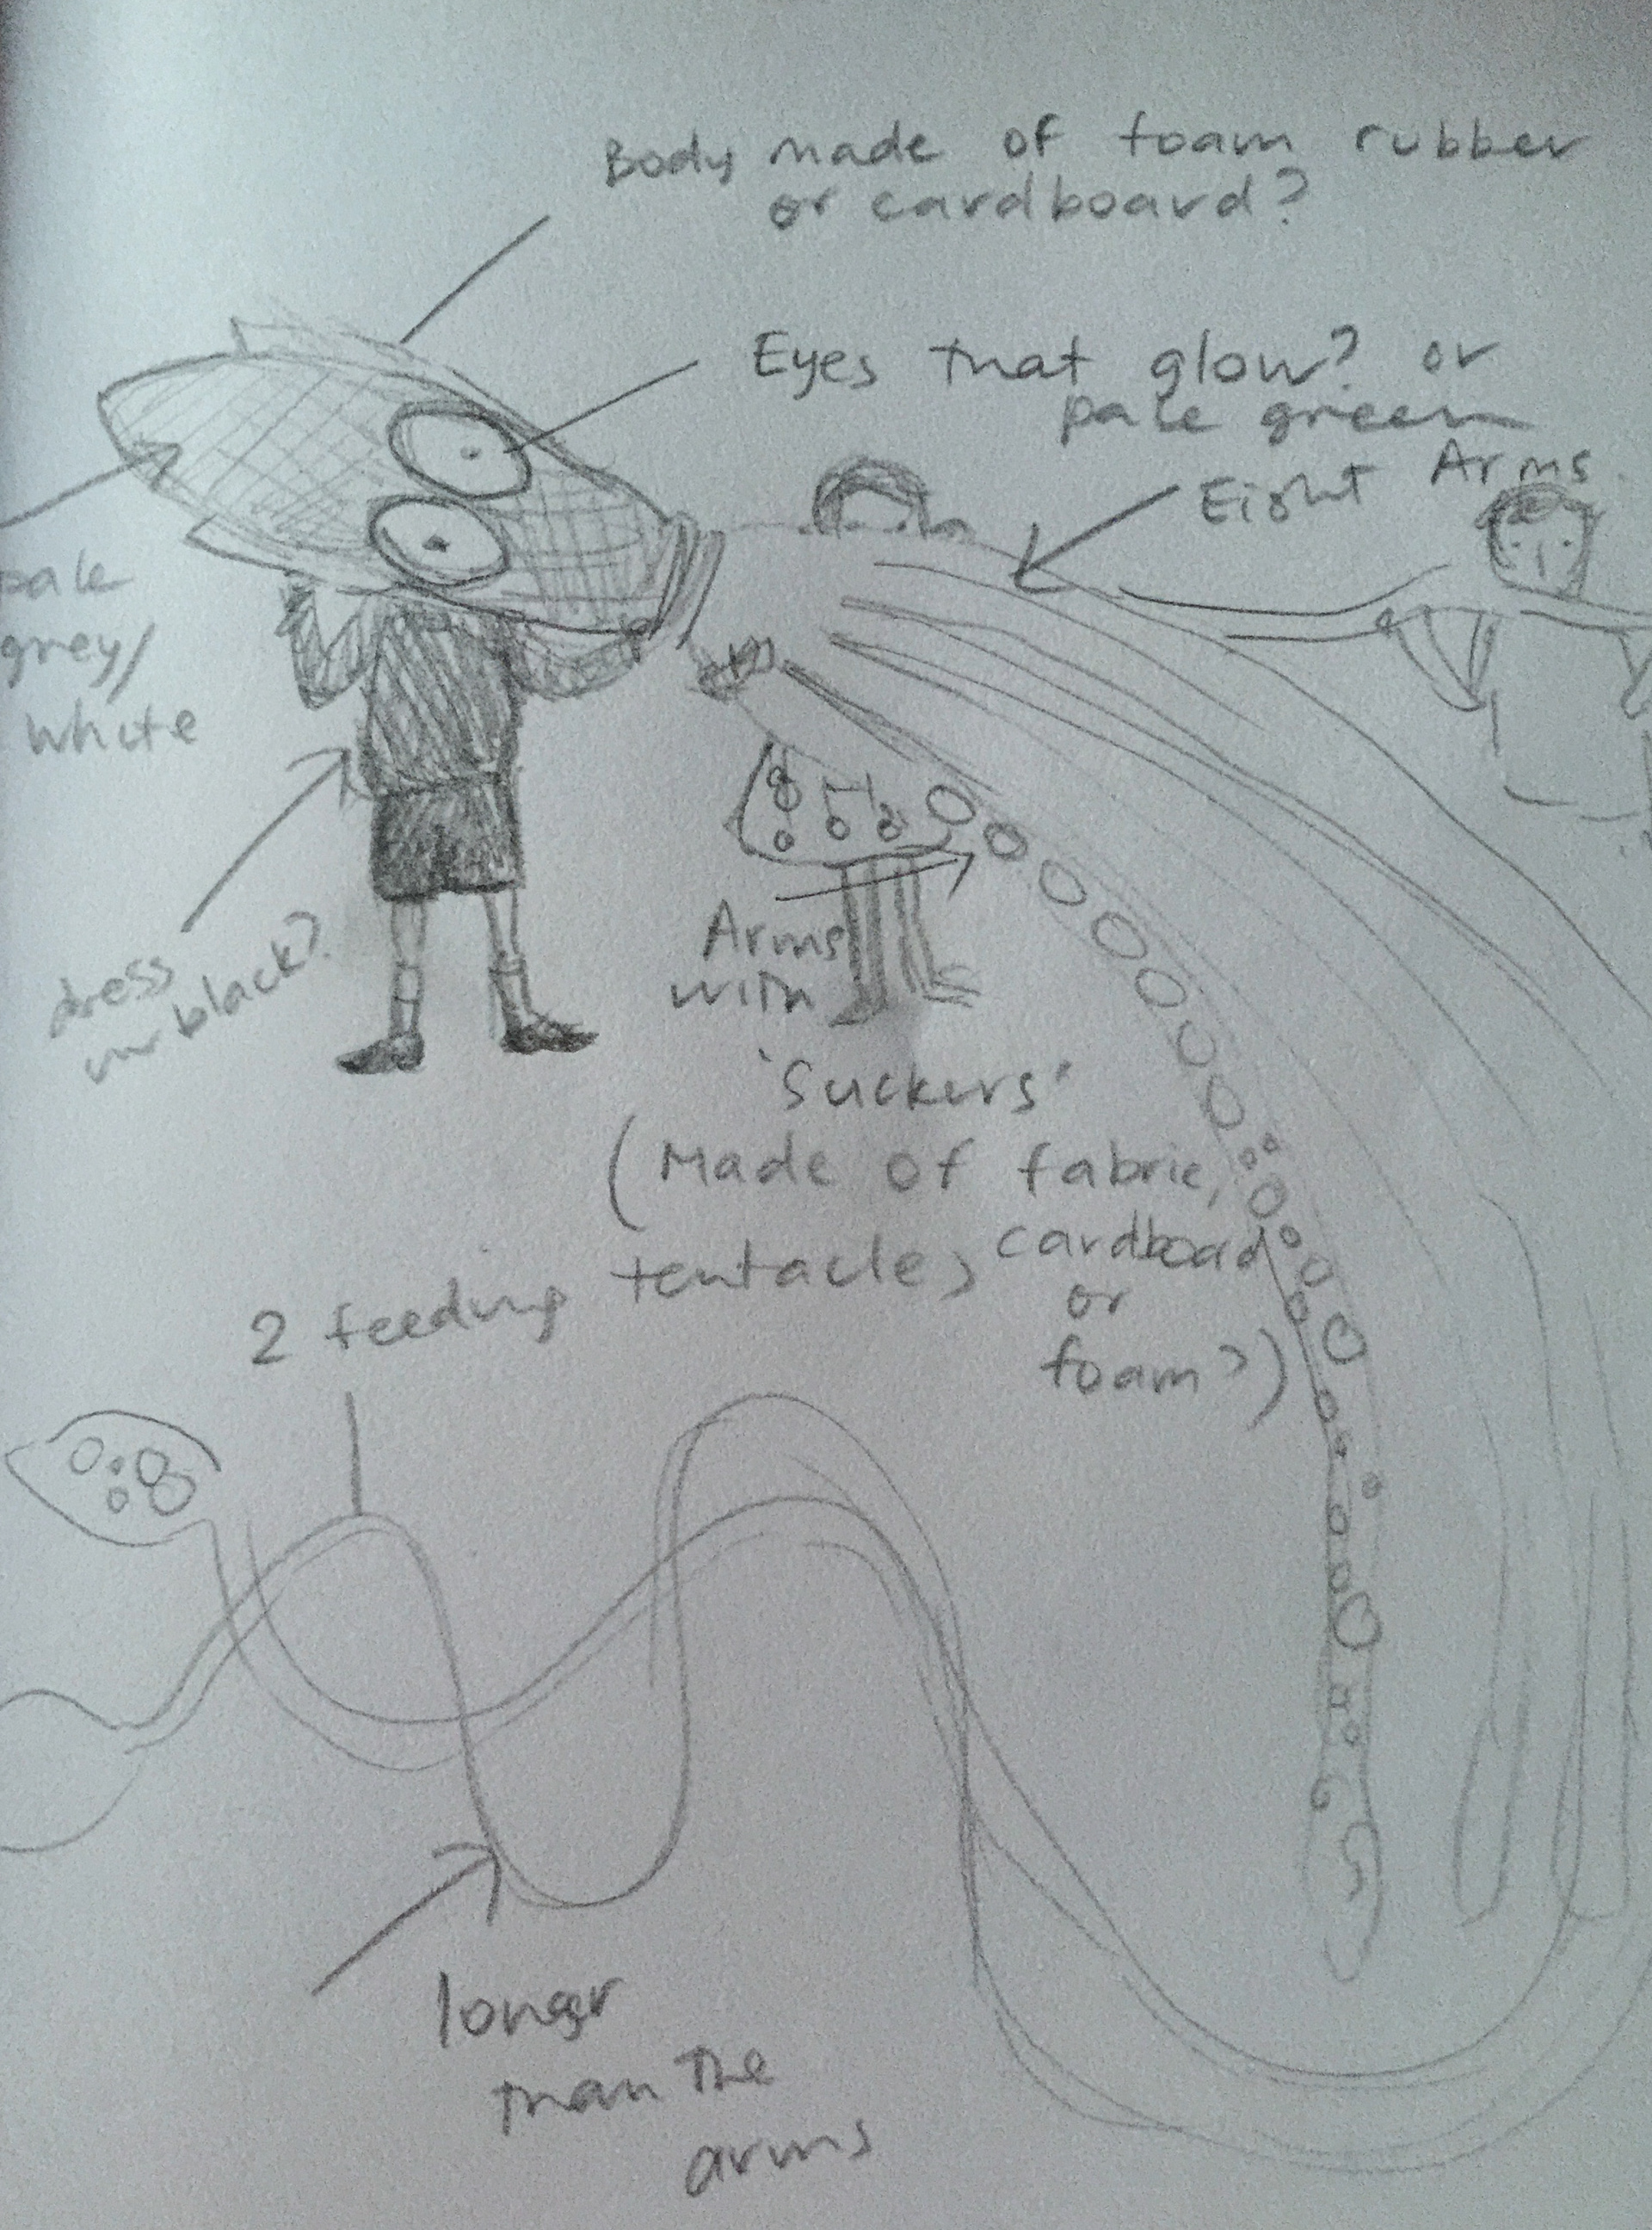 Body made of foam rubber
or cardboard?
Eyes that glow? or
pale green
Eight Arms
pale
grey/
white
dress
in black?
Arms
with
'Suckers'
(Made of fabric,
cardboard
or
foam?)
2 feeding tentacles
longer
than the
arms